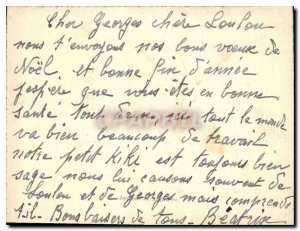 Cher Georges chère Loulou
nous t'envoyons nos bons vœux de
Noël et bonne fin d'année
j'espère que vous êtes en bonne
santé tous deux ici tout le monde
va bien beaucoup de travail
notre petit Kiki est toujours bien
sage nous lui causons souvent de
Loulou et de Georges mais comprends
t-il - Bons baisers de tous - Béatrix